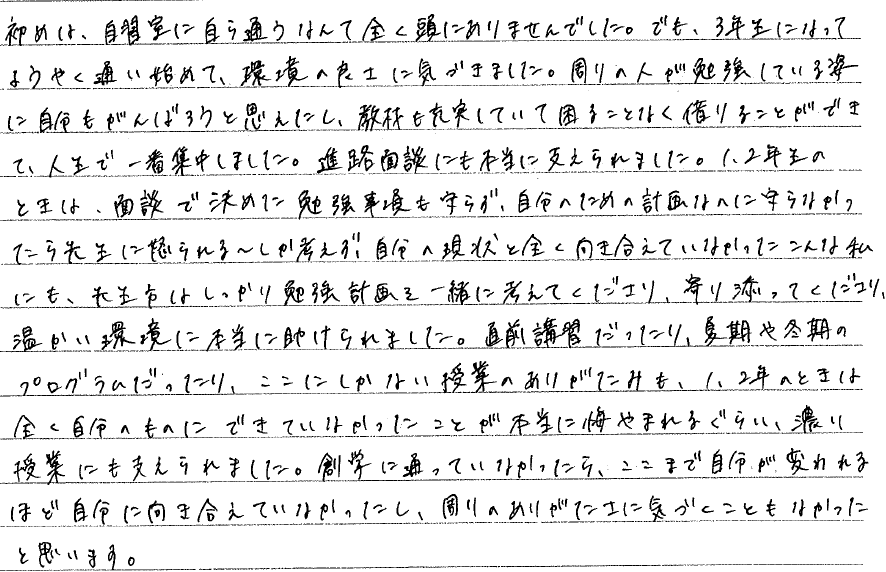 初めは、自習室に自ら通うなんて全く頭にありませんでした。でも、3年生になって
ようやく通い始めて、環境の良さに気づきました。周りの人が勉強している姿
に自分もがんばろうと思えたし、教材も充実していて困ることなく借りることができ
て、人生で一番集中しました。進路面談にも本当に支えられました。1、2年生の
ときは、面談で決めた勉強事項も守らず、自分のための計画なのに守らなかっ
たら先生に怒られる〜しか考えず、自分の現状と全く向き合えていなかったこんな私
にも、先生方はしっかり勉強計画を一緒に考えてくださり、寄り添ってくださり、
温かい環境に本当に助けられました。直前講習だったり、夏期や冬期の
プログラムだったり、ここにしかない授業のありがたみも、1、2年のときは
全く自分のものにできていなかったことが本当に悔やまれるぐらい、濃い
授業にも支えられました。創学に通っていなかったら、ここまで自分が変われる
ほど自分に向き合えていなかったし、周りのありがたさに気づくこともなかった
と思います。